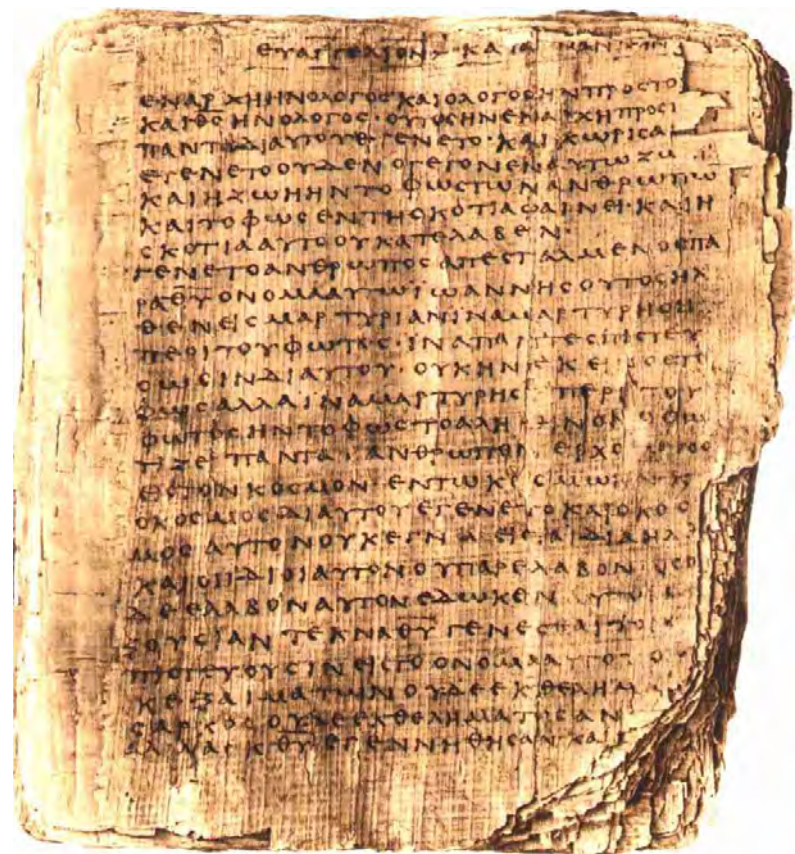 ΕΥΑΓΓΕΛΙΟΝ ΚΑΤΑ
ΕΝΑΡΧΗΗΝΟΛΟΓΟϹΚΑΙΟΛΟΓΟϹΗΝΠΡΟϹΤΟ
ΚΑΙΘϹΗΝΟΛΟΓΟϹ·ΟΥΤΟϹΗΝΕΝΑΡΧΗΠΡΟϹΤ
ΠΑΝΤΑΔΙΑΥΤΟΥΕΓΕΝΕΤΟ·ΚΑΙΧΩΡΙϹΑ
ΕΓΕΝΕΤΟΟΥΔΕΝΟΓΕΓΟΝΕΝΕΝΑΥΤΩΖΩ
ΚΑΙΗΖΩΗΗΝΤΟΦΩϹΤΩΝΑΝΘΡΩΠΩ
ΚΑΙΤΟΦΩϹΕΝΤΗϹΚΟΤΙΑΦΑΙΝΕΙ·ΚΑΙΗ
ϹΚΟΤΙΑΑΥΤΟΟΥΚΑΤΕΛΑΒΕΝ·
ΓΕΝΕΤΟΑΝΘΡΩΠΟϹΑΠΕϹΤΑΛΜΕΝΟϹΠΑ
ΡΑΘΥΟΝΟΜΑΑΥΤΩΙΩΑΝΝΗϹΟΥΤΟϹΗΛ
ΘΕΝΕΙϹΜΑΡΤΥΡΙΑΝΙΝΑΜΑΡΤΥΡΗϹΗ
ΠΕΡΙΤΟΥΦΩΤΟϹ·ΙΝΑΠΑΝΤΕϹΠΙϹΤΕΥ
ϹΩϹΙΝΔΙΑΥΤΟΥ·ΟΥΚΗΝΕΚΕΙΝΟϹΤΟ
ΦΩϹΑΛΛΑΙΝΑΜΑΡΤΥΡΗϹΗΠΕΡΙΤΟΥ
ΦΩΤΟϹΗΝΤΟΦΩϹΤΟΑΛΗΘΙΝΟΝΟΦΩ
ΤΙΖΕΙΠΑΝΤΑΑΝΘΡΩΠΟΝΕΡΧΟ
ΕΙϹΤΟΝΚΟϹΜΟΝ·ΕΝΤΩΚΟϹΜΩ
ΟΚΟϹΜΟϹΔΙΑΥΤΟΥΕΓΕΝΕΤΟΚΑΙΟΚΟϹ
ΜΟϹΑΥΤΟΝΟΥΚΕΓΝΩΕΙϹΤΑΙΔΙΑΗΛ
ΚΑΙΟΙΙΔΙΟΙΑΥΤΟΝΟΥΠΑΡΕΛΑΒΟΝ·ΟϹΟ
ΔΕΕΛΑΒΟΝΑΥΤΟΝΕΔΩΚΕΝΑΥΤΟΙ
ΞΟΥϹΙΑΝΤΕΚΝΑΘΥΓΕΝΕϹΘΑΙΤΟΙ
ΠΙϹΤΕΥΟΥϹΙΝΕΙϹΤΟΟΝΟΜΑΑΥΤΟΥ
ΚΕΞΑΙΜΑΤΩΝΟΥΔΕΕΚΘΕΛΗΜ
ϹΑΡΚΟϹΟΥΔΕΕΚΘΕΛΗΜΑΤΟϹΑΝ
ΑΛΛΑΕΚΘΥΕΓΕΝΝΗΘΗϹΑΝΚΑΙ